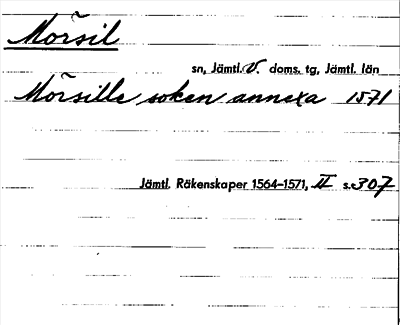 Mörsil
sn, Jämtl. V. doms. tg, Jämtl. län
Mörsills soken annexa 1571
Jämtl. Räkenskaper 1564-1571, II s. 307